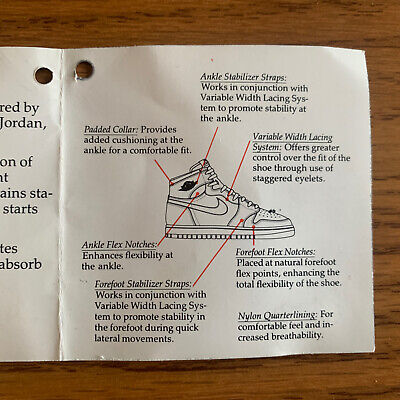 red by
Jordan,
on of
nt
ains sta-
starts
tes
absorb
Ankle Stabilizer Straps:
Works in conjunction with
Variable Width Lacing Sys-
tem to promote stability at
the ankle.
Padded Collar: Provides
added cushioning at the
ankle for a comfortable fit.
Variable Width Lacing
System: Offers greater
control over the fit of the
shoe through use of
staggered eyelets.
Ankle Flex Notches:
Enhances flexibility at
the ankle.
Forefoot Flex Notches:
Placed at natural forefoot
flex points, enhancing the
total flexibility of the shoe.
Forefoot Stabilizer Straps:
Works in conjunction with
Variable Width Lacing Sys-
tem to promote stability in
the forefoot during quick
lateral movements.
Nylon Quarterlining: For
comfortable feel and in-
creased breathability.